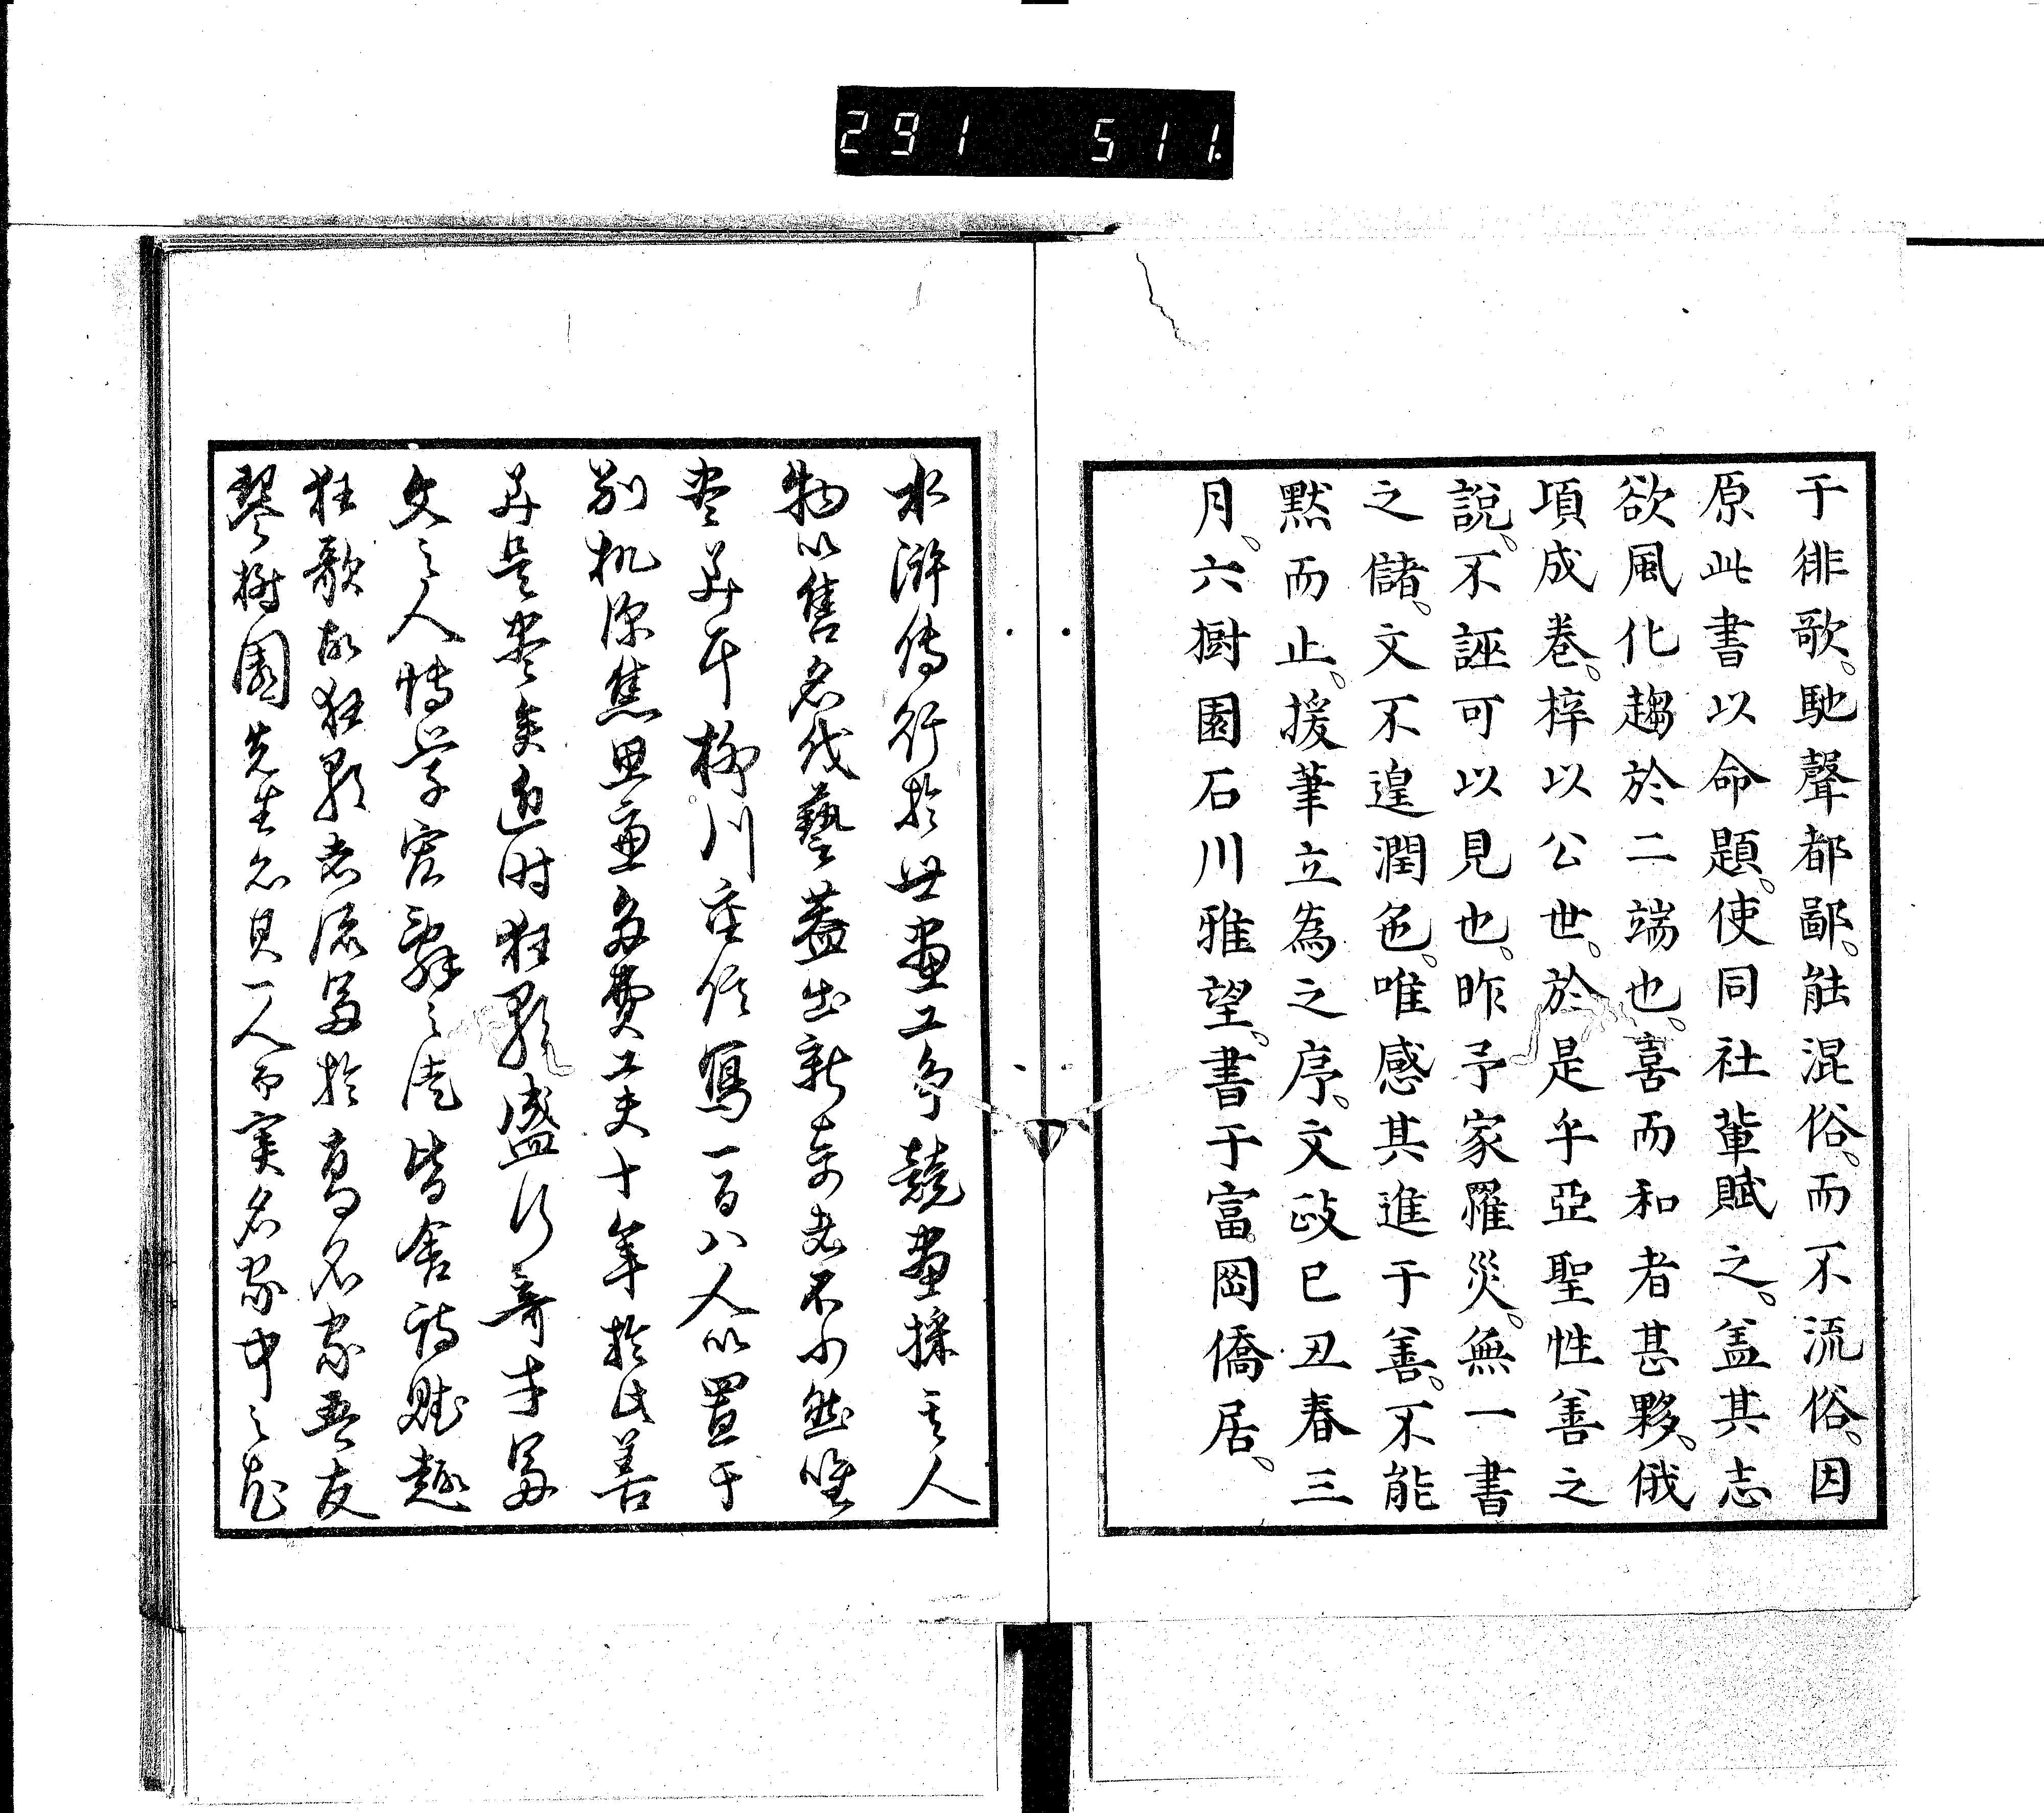 291 511.
于徘歌。馳聲都鄙。能混俗。而不流俗。因
原此書以命題。使同社輩賦之。盖其志
欲風化趨於二端也。喜而和者甚夥。俄
項成卷。梓以公世。於是乎亞聖性善之
說。不誣可以見也。昨予家罹災。無一書
之儲。文不遑潤色。唯感其進于善。不能
黙而止。援筆立為之序。文政己丑春三
月。六樹園石川雅望。書于富岡僑居。
水滸傳行於世畫工争競畫採其人
物以售名伐藝蓋出新奇者不少然唯
柳川重信寫一百八人以置于
別机深焦思兼多費工夫十年於此善
矣近时狂歌盛行奇才富
文之人博学宏辭之徒皆舍詩賦趣
狂歌故狂歌者流富於高名家吾友
琴樹園先生名具一人而実名家中之